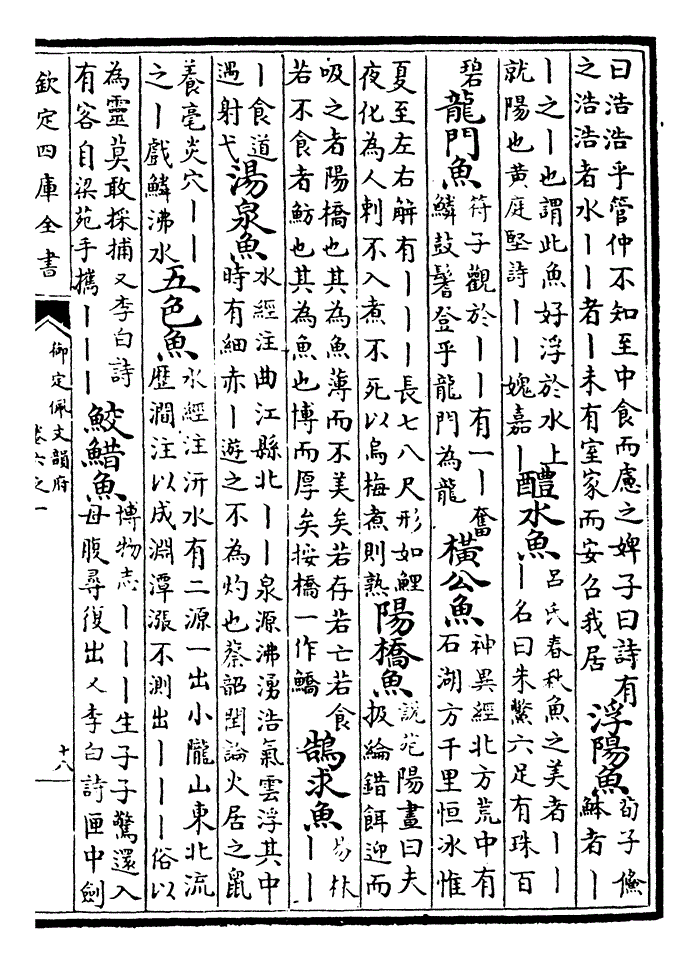 曰浩浩乎管仲不知至中食而慮之婢子曰詩有
之浩浩者水丨丨者丨未有室家而安召我居
浮陽魚
荀子鯈
䱁者丨
丨之丨也謂此魚好浮於水上
就陽也黃庭堅詩丨丨媿嘉丨
醴水魚
呂氏春秋魚之美者丨丨
丨名曰朱鱉六足有珠百
碧
龍門魚
符子觀於丨丨有一丨奮
鱗鼓鬐登乎龍門為龍
橫公魚
神異經北方荒中有
石湖方千里恒冰惟
夏至左右觧有丨丨丨長七八尺形如鯉
夜化為人刺不入煮不死以烏梅煮則熟
陽橋魚
說苑陽晝曰夫
扱綸錯餌迎而
吸之者陽橋也其為魚薄而不美矣若存若亡若食
若不食者魴也其為魚也博而厚矣按橋一作鱎
鵠求魚
易林
丨丨
丨食道
遇射弋
湯泉魚
水經注曲江縣北丨丨泉源沸湧浩氣雲浮其中
時有細赤丨遊之不為灼也蔡韶閏論火居之鼠
養毫炎穴丨丨
之丨戲鱗沸水
五色魚
水經注汧水有二源一出小隴山東北流
歷澗注以成淵潭漲不測出丨丨丨俗以
為靈莫敢採捕又李白詩
有客自梁苑手攜丨丨丨
鮫䱜魚
博物志丨丨丨生子子驚還入
母腹尋復出又李白詩匣中劍
欽定四庫全書
御定佩文韻府
卷六之一
十八